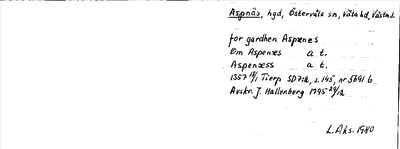 Aspnäs, hgd, Östervåla sn, Våla hd, Västml.
for gardhen Aspænes
Om Aspenæs a t.
Aspenæss a t.
1357 18/1 Tierp SD 7:2, s. 145, nr 5891 b
Avskr. J. Hallenberg 1795 29/12
L. Aks. 1980